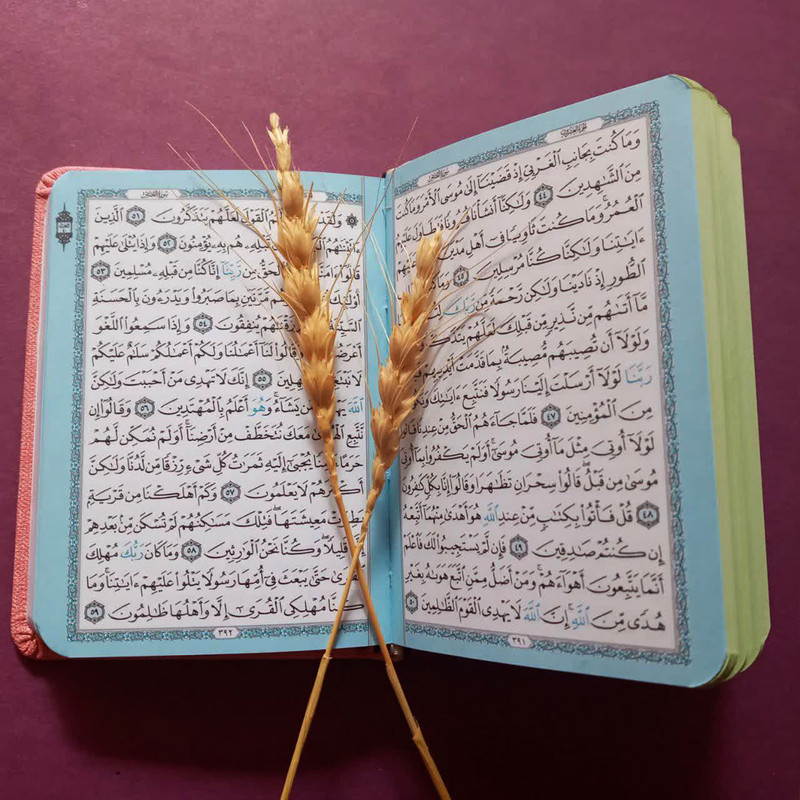 الجزء العشرون
سورة القصص
وَمَا كُنتَ بِجَانِبِ ٱلْغَرْبِيِّ إِذْ قَضَيْنَآ إِلَىٰ مُوسَى ٱلْأَمْرَ وَمَا كُنتَ
مِنَ ٱلشَّٰهِدِينَ ٤٤ وَلَٰكِنَّآ أَنشَأْنَا قُرُونًا فَتَطَاوَلَ عَلَيْهِمُ
ٱلْعُمُرُ وَمَا كُنتَ ثَاوِيًا فِيٓ أَهْلِ مَدْيَنَ عَلَيْهِمْ
ءَايَٰتِنَا وَلَٰكِنَّا كُنَّا مُرْسِلِينَ ٤٥ وَمَا
ٱلطُّورِ إِذْ نَادَيْنَا وَلَٰكِن رَّحْمَةً مِّن رَّبِّكَ
مَّآ أَتَىٰهُم مِّن نَّذِيرٍ مِّن قَبْلِكَ لَعَلَّهُمْ يَتَذَكَّرُونَ
وَلَوْلَآ أَن تُصِيبَهُم مُّصِيبَةٌ بِمَا قَدَّمَتْ أَيْدِيهِمْ
رَبَّنَا لَوْلَآ أَرْسَلْتَ إِلَيْنَا رَسُولًا فَنَتَّبِعَ ءَايَٰتِكَ وَنَكُونَ
مِنَ ٱلْمُؤْمِنِينَ ٤٧ فَلَمَّا جَآءَهُمُ ٱلْحَقُّ مِنْ عِندِنَا قَالُوا۟
لَوْلَآ أُوتِيَ مِثْلَ مَآ أُوتِيَ مُوسَىٰٓ أَوَلَمْ يَكْفُرُوا۟ بِمَآ أُوتِيَ
مُوسَىٰ مِن قَبْلُ قَالُوا۟ سِحْرَانِ تَظَٰهَرَا وَقَالُوٓا۟ إِنَّا بِكُلٍّ كَٰفِرُونَ
٤٨ قُلْ فَأْتُوا۟ بِكِتَٰبٍ مِّنْ عِندِ ٱللَّهِ هُوَ أَهْدَىٰ مِنْهُمَآ أَتَّبِعْهُ
إِن كُنتُمْ صَٰدِقِينَ ٤٩ فَإِن لَّمْ يَسْتَجِيبُوا۟ لَكَ فَٱعْلَمْ
أَنَّمَا يَتَّبِعُونَ أَهْوَآءَهُمْ وَمَنْ أَضَلُّ مِمَّنِ ٱتَّبَعَ هَوَىٰهُ بِغَيْرِ
هُدًى مِّنَ ٱللَّهِ إِنَّ ٱللَّهَ لَا يَهْدِي ٱلْقَوْمَ ٱلظَّٰلِمِينَ ٥٠
٣٩١
سورة القصص
وَلَقَدْ لَهُمُ ٱلْقَوْلَ لَعَلَّهُمْ يَتَذَكَّرُونَ ٥١ ٱلَّذِينَ
ءَاتَيْنَٰهُمُ قَبْلِهِۦ هُم بِهِۦ يُؤْمِنُونَ ٥٢ وَإِذَا يُتْلَىٰ عَلَيْهِمْ
قَالُوٓا۟ ءَامَنَّا ٱلْحَقُّ مِن رَّبِّنَآ إِنَّا كُنَّا مِن قَبْلِهِۦ مُسْلِمِينَ ٥٣
أُو۟لَٰٓئِكَ مَّرَّتَيْنِ بِمَا صَبَرُوا۟ وَيَدْرَءُونَ بِٱلْحَسَنَةِ
ٱلسَّيِّئَةَ رَزَقْنَٰهُمْ يُنفِقُونَ ٥٤ وَإِذَا سَمِعُوا۟ ٱللَّغْوَ
أَعْرَضُوا۟ وَقَالُوا۟ لَنَآ أَعْمَٰلُنَا وَلَكُمْ أَعْمَٰلُكُمْ سَلَٰمٌ عَلَيْكُمْ
لَا نَبْتَغِي ٱلْجَٰهِلِينَ ٥٥ إِنَّكَ لَا تَهْدِي مَنْ أَحْبَبْتَ وَلَٰكِنَّ
ٱللَّهَ يَهْدِي يَشَآءُ وَهُوَ أَعْلَمُ بِٱلْمُهْتَدِينَ ٥٦ وَقَالُوٓا۟ إِن
نَّتَّبِعِ ٱلْهُدَىٰ مَعَكَ نُتَخَطَّفْ مِنْ أَرْضِنَآ أَوَلَمْ نُمَكِّن لَّهُمْ
حَرَمًا ءَامِنًا يُجْبَىٰٓ إِلَيْهِ ثَمَرَٰتُ كُلِّ شَيْءٍ رِّزْقًا مِّن لَّدُنَّا وَلَٰكِنَّ
أَكْثَرَهُمْ لَا يَعْلَمُونَ ٥٧ وَكَمْ أَهْلَكْنَا مِن قَرْيَةٍ
بَطِرَتْ مَعِيشَتَهَا فَتِلْكَ مَسَٰكِنُهُمْ لَمْ تُسْكَن مِّنۢ بَعْدِهِمْ
إِلَّا قَلِيلًا وَكُنَّا نَحْنُ ٱلْوَٰرِثِينَ ٥٨ وَمَا كَانَ رَبُّكَ مُهْلِكَ
ٱلْقُرَىٰ حَتَّىٰ يَبْعَثَ فِيٓ أُمِّهَا رَسُولًا يَتْلُوا۟ عَلَيْهِمْ ءَايَٰتِنَا وَمَا
كُنَّا مُهْلِكِي ٱلْقُرَىٰٓ إِلَّا وَأَهْلُهَا ظَٰلِمُونَ ٥٩
٣٩٢